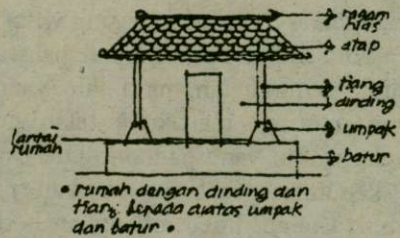 ragam
hias
atap
tiang
dinding
umpak
lantai
rumah
batur
• rumah dengan dinding dan
tiang berada diatas umpak
dan batur •